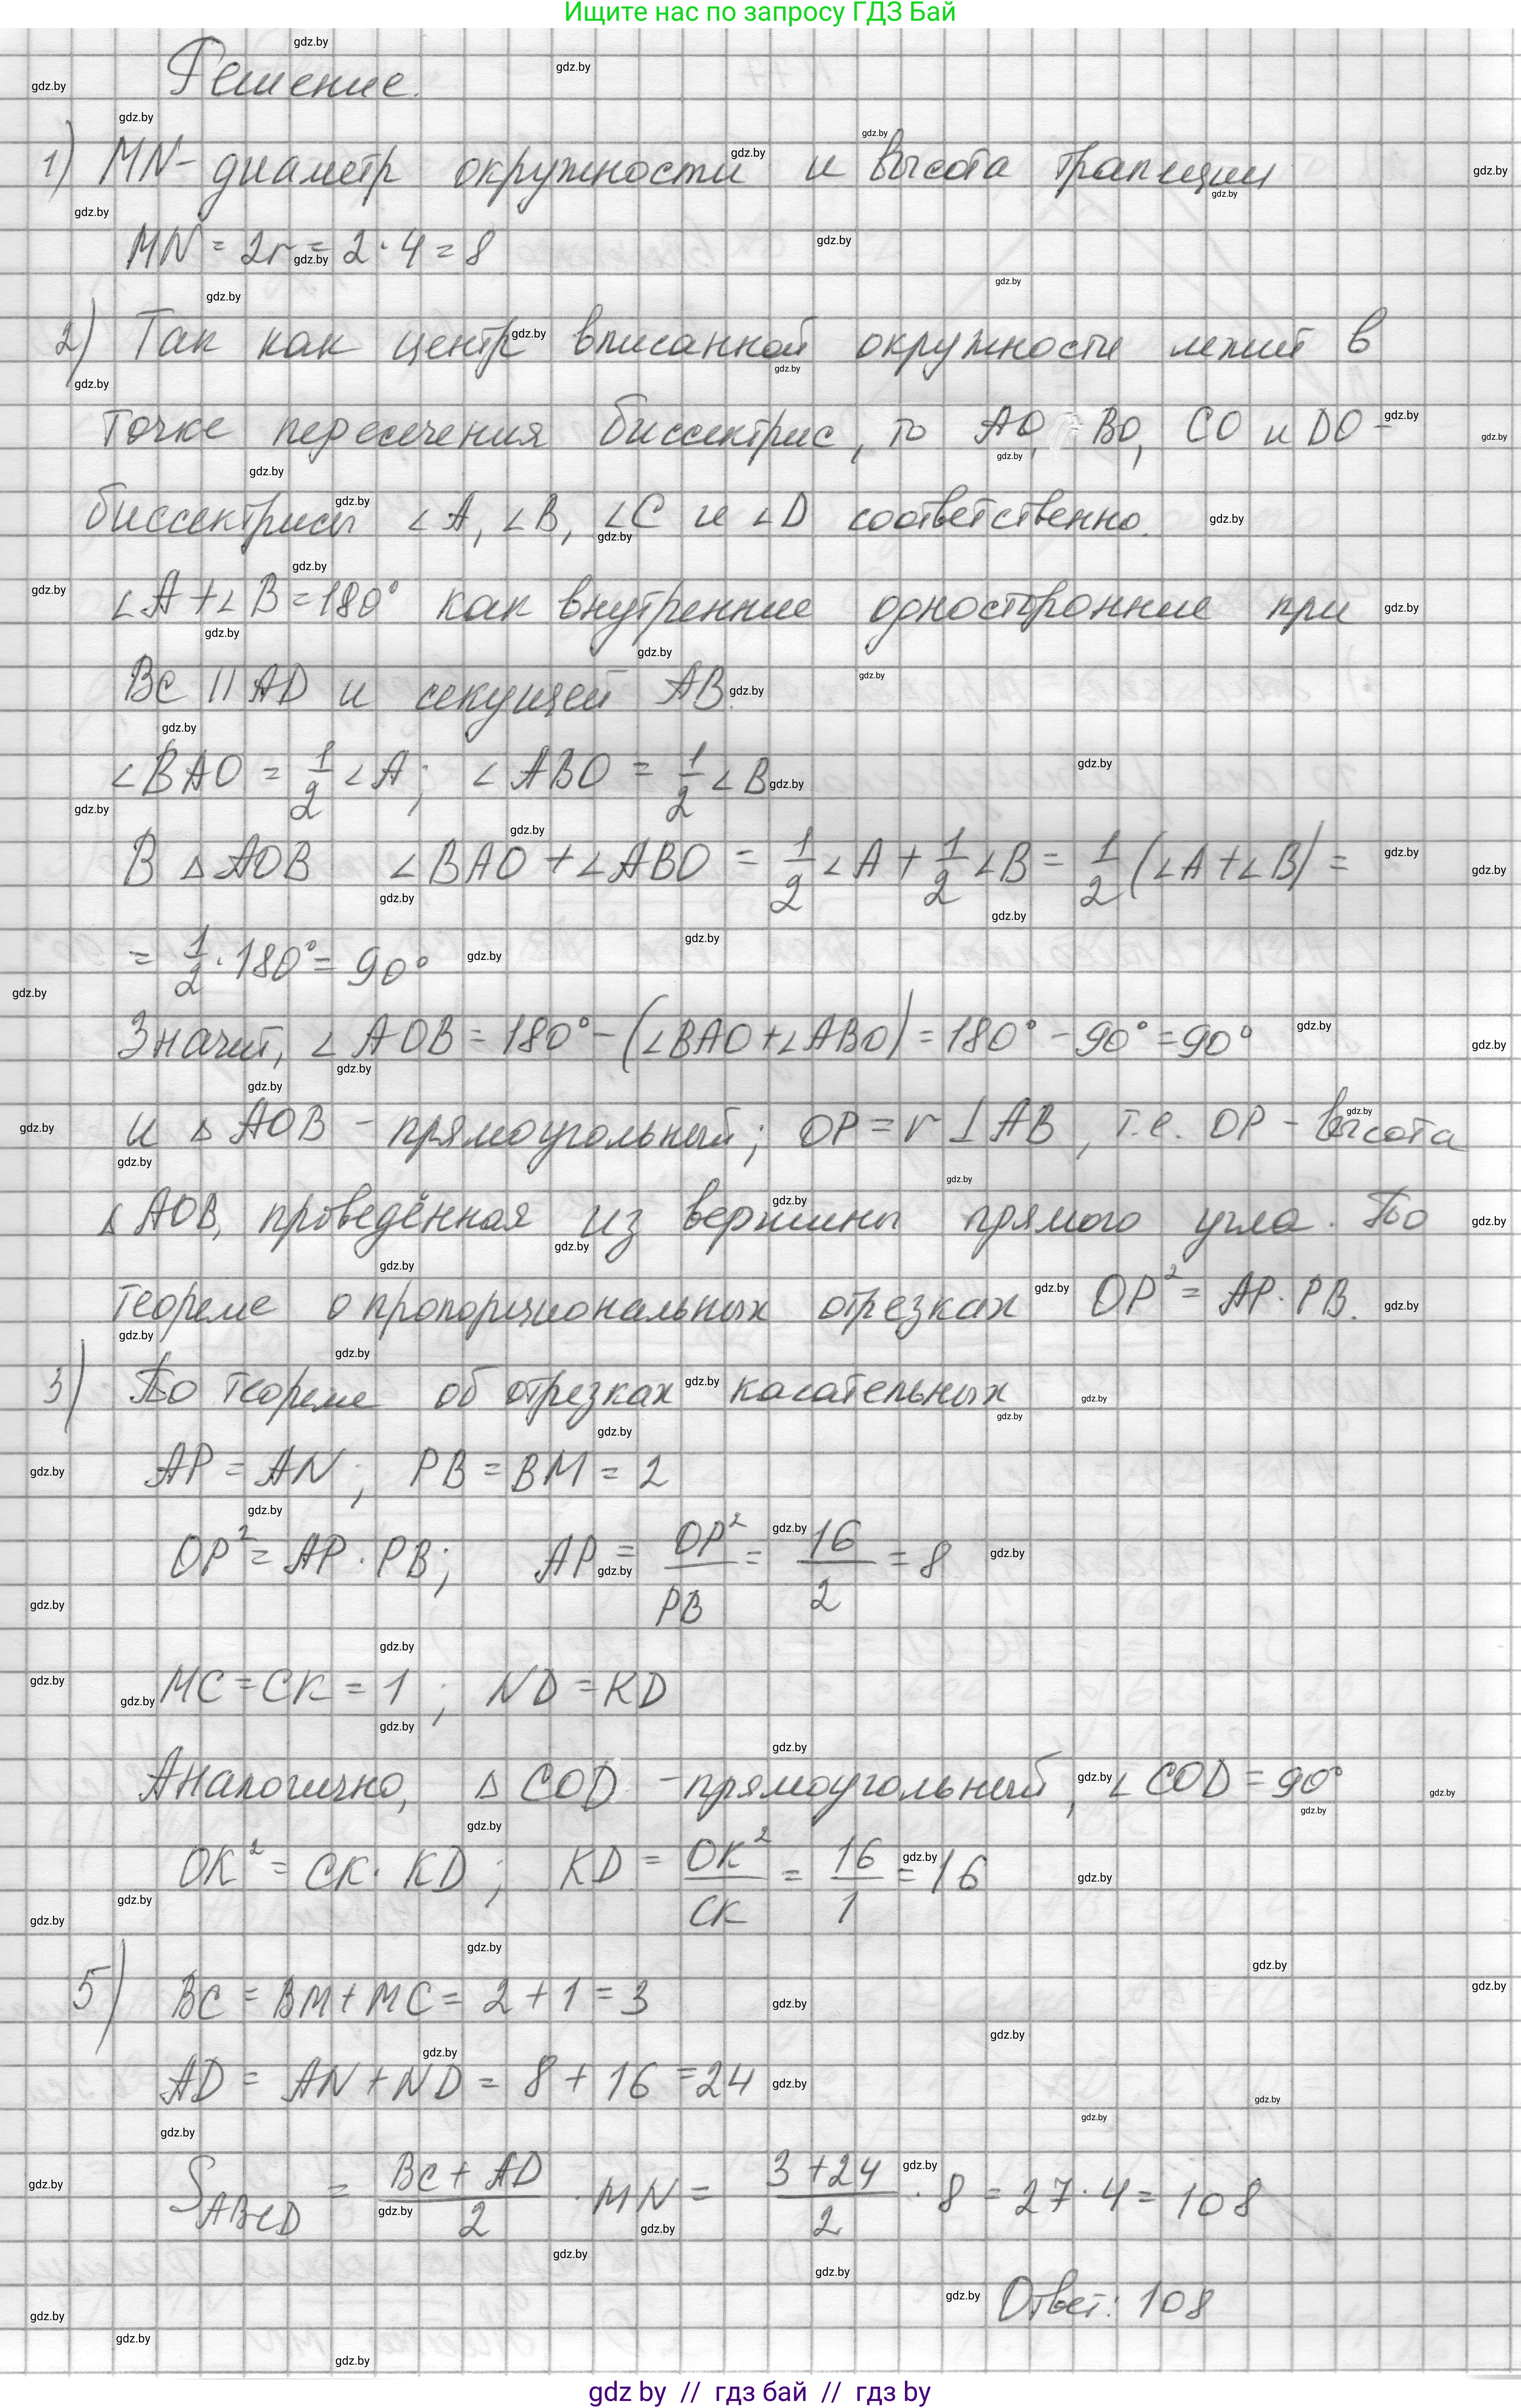 Ищите нас по запросу ГДЗ Бай
Решение.
1) MN - диаметр окружности и высота трапеции
MN = 2r = 2 · 4 = 8
2) Так как центр вписанной окружности лежит в
точке пересечения биссектрис, то AO, BO, CO и DO -
биссектрисы ∠A, ∠B, ∠C и ∠D соответственно.
∠A + ∠B = 180° как внутренние односторонние при
BC || AD и секущей AB.
∠BAO = 1/2 ∠A; ∠ABO = 1/2 ∠B
В △AOB ∠BAO + ∠ABO = 1/2 ∠A + 1/2 ∠B = 1/2 (∠A + ∠B) =
= 1/2 · 180° = 90°
Значит, ∠AOB = 180° - (∠BAO + ∠ABO) = 180° - 90° = 90°
и △AOB - прямоугольный; OP = r ⊥ AB, т.е. OP - высота
△AOB, проведённая из вершины прямого угла. По
теореме о пропорциональных отрезках OP² = AP · PB.
3) По теореме об отрезках касательных
AP = AN; PB = BM = 2
OP² = AP · PB; AP = OP²/PB = 16/2 = 8
MC = CK = 1; ND = KD
Аналогично, △COD - прямоугольный, ∠COD = 90°
OK² = CK · KD; KD = OK²/CK = 16/1 = 16
5) BC = BM + MC = 2 + 1 = 3
AD = AN + ND = 8 + 16 = 24
S_ABCD = (BC + AD)/2 · MN = (3 + 24)/2 · 8 = 27 · 4 = 108
Ответ: 108
gdz by // гдз бай // гдз by